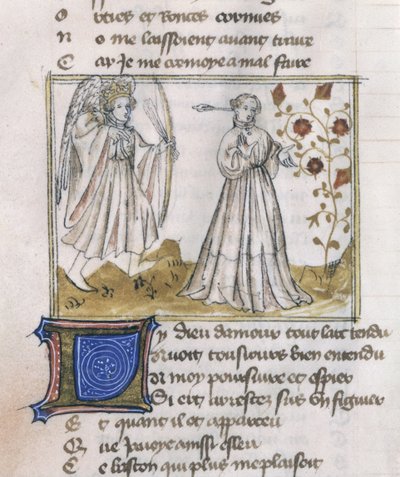 O rties et Ronces cornues
N e me laissoient auant traire
C ar Je me cremoye a mal faire
L y dieu damour tout larc tendu
Auoit tousiours bien entendu
A moy poursuiure et espier
Si cest arrestes sus vn figuier
E t quant il ot apparceu
Q ue Jauoye ainssi esleu
C e baston qui plus me plaisoit